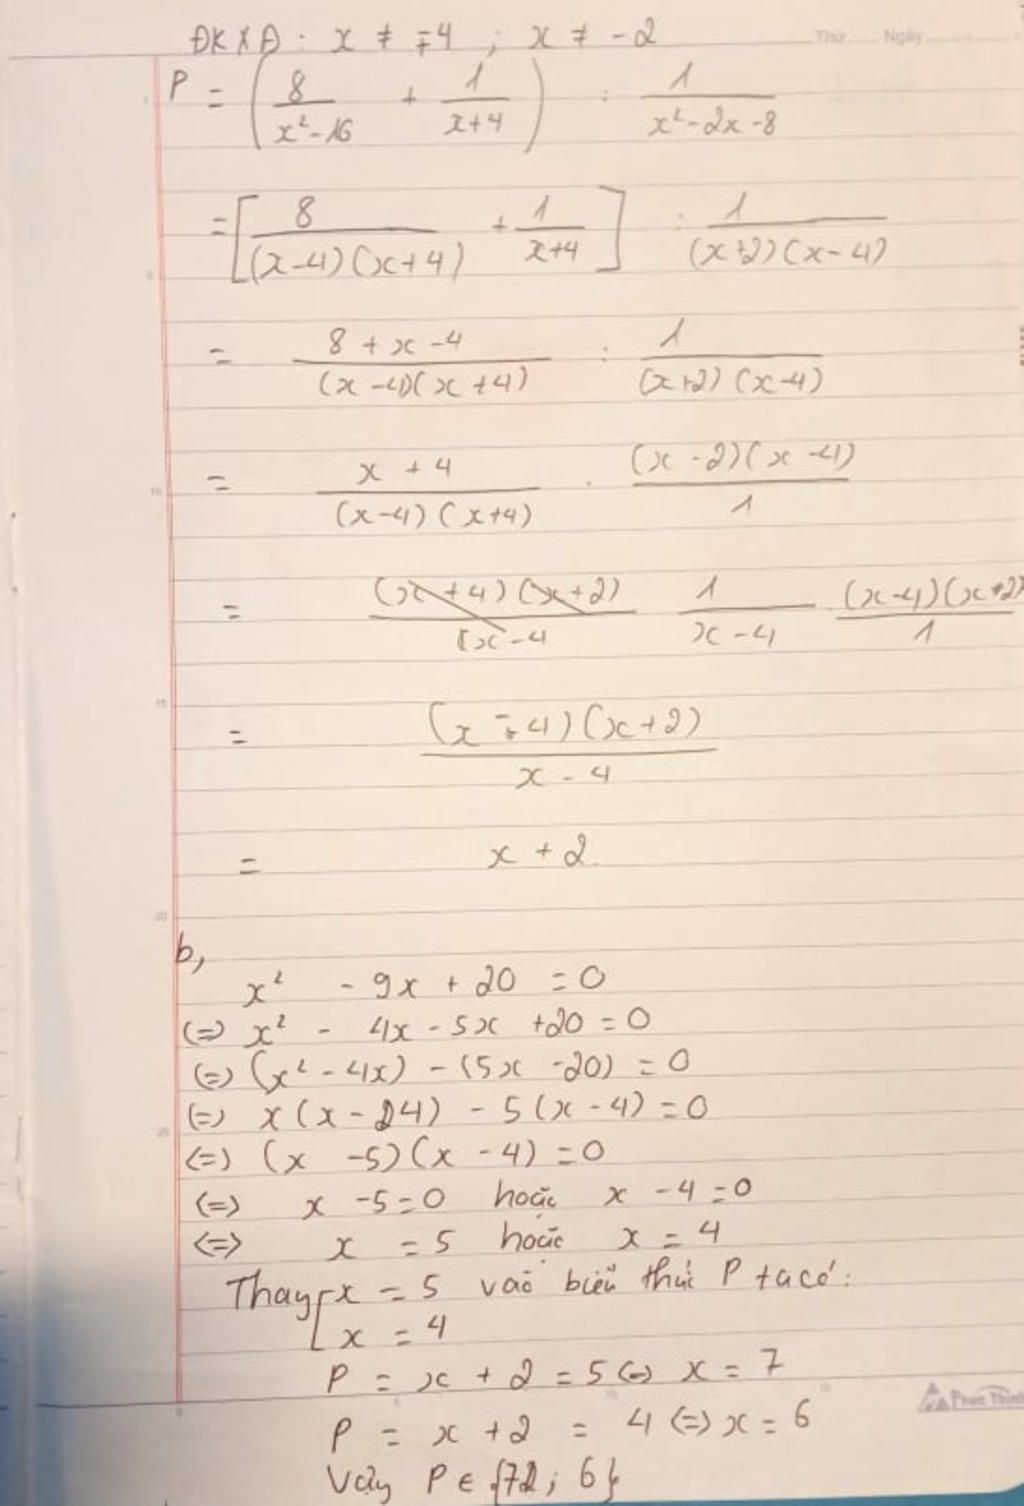 ĐKXĐ: x ≠ ∓4 ; x ≠ -2
Thứ Ngày
P = (8/(x²-16) + 1/(x+4)) : 1/(x²-2x-8)
= [8/((x-4)(x+4)) + 1/(x+4)] : 1/((x+2)(x-4))
= (8+x-4)/((x-4)(x+4)) : 1/((x+2)(x-4))
= (x+4)/((x-4)(x+4)) . ((x-2)(x-4))/1
= ((x+4)(x+2))/(x-4) 1/(x-4) ((x-4)(x+2))/1
= ((x-4)(x+2))/(x-4)
= x+2
b,
x² - 9x + 20 = 0
(=) x² - 4x - 5x + 20 = 0
(=) (x² - 4x) - (5x - 20) = 0
(=) x(x - 4) - 5(x - 4) = 0
(=) (x - 5)(x - 4) = 0
(=) x - 5 = 0 hoặc x - 4 = 0
(=) x = 5 hoặc x = 4
Thay [x = 5 vào biểu thức P ta có:
x = 4
P = x + 2 = 5 (=) x = 7
P = x + 2 = 4 (=) x = 6
Vậy P ∈ {7; 6}